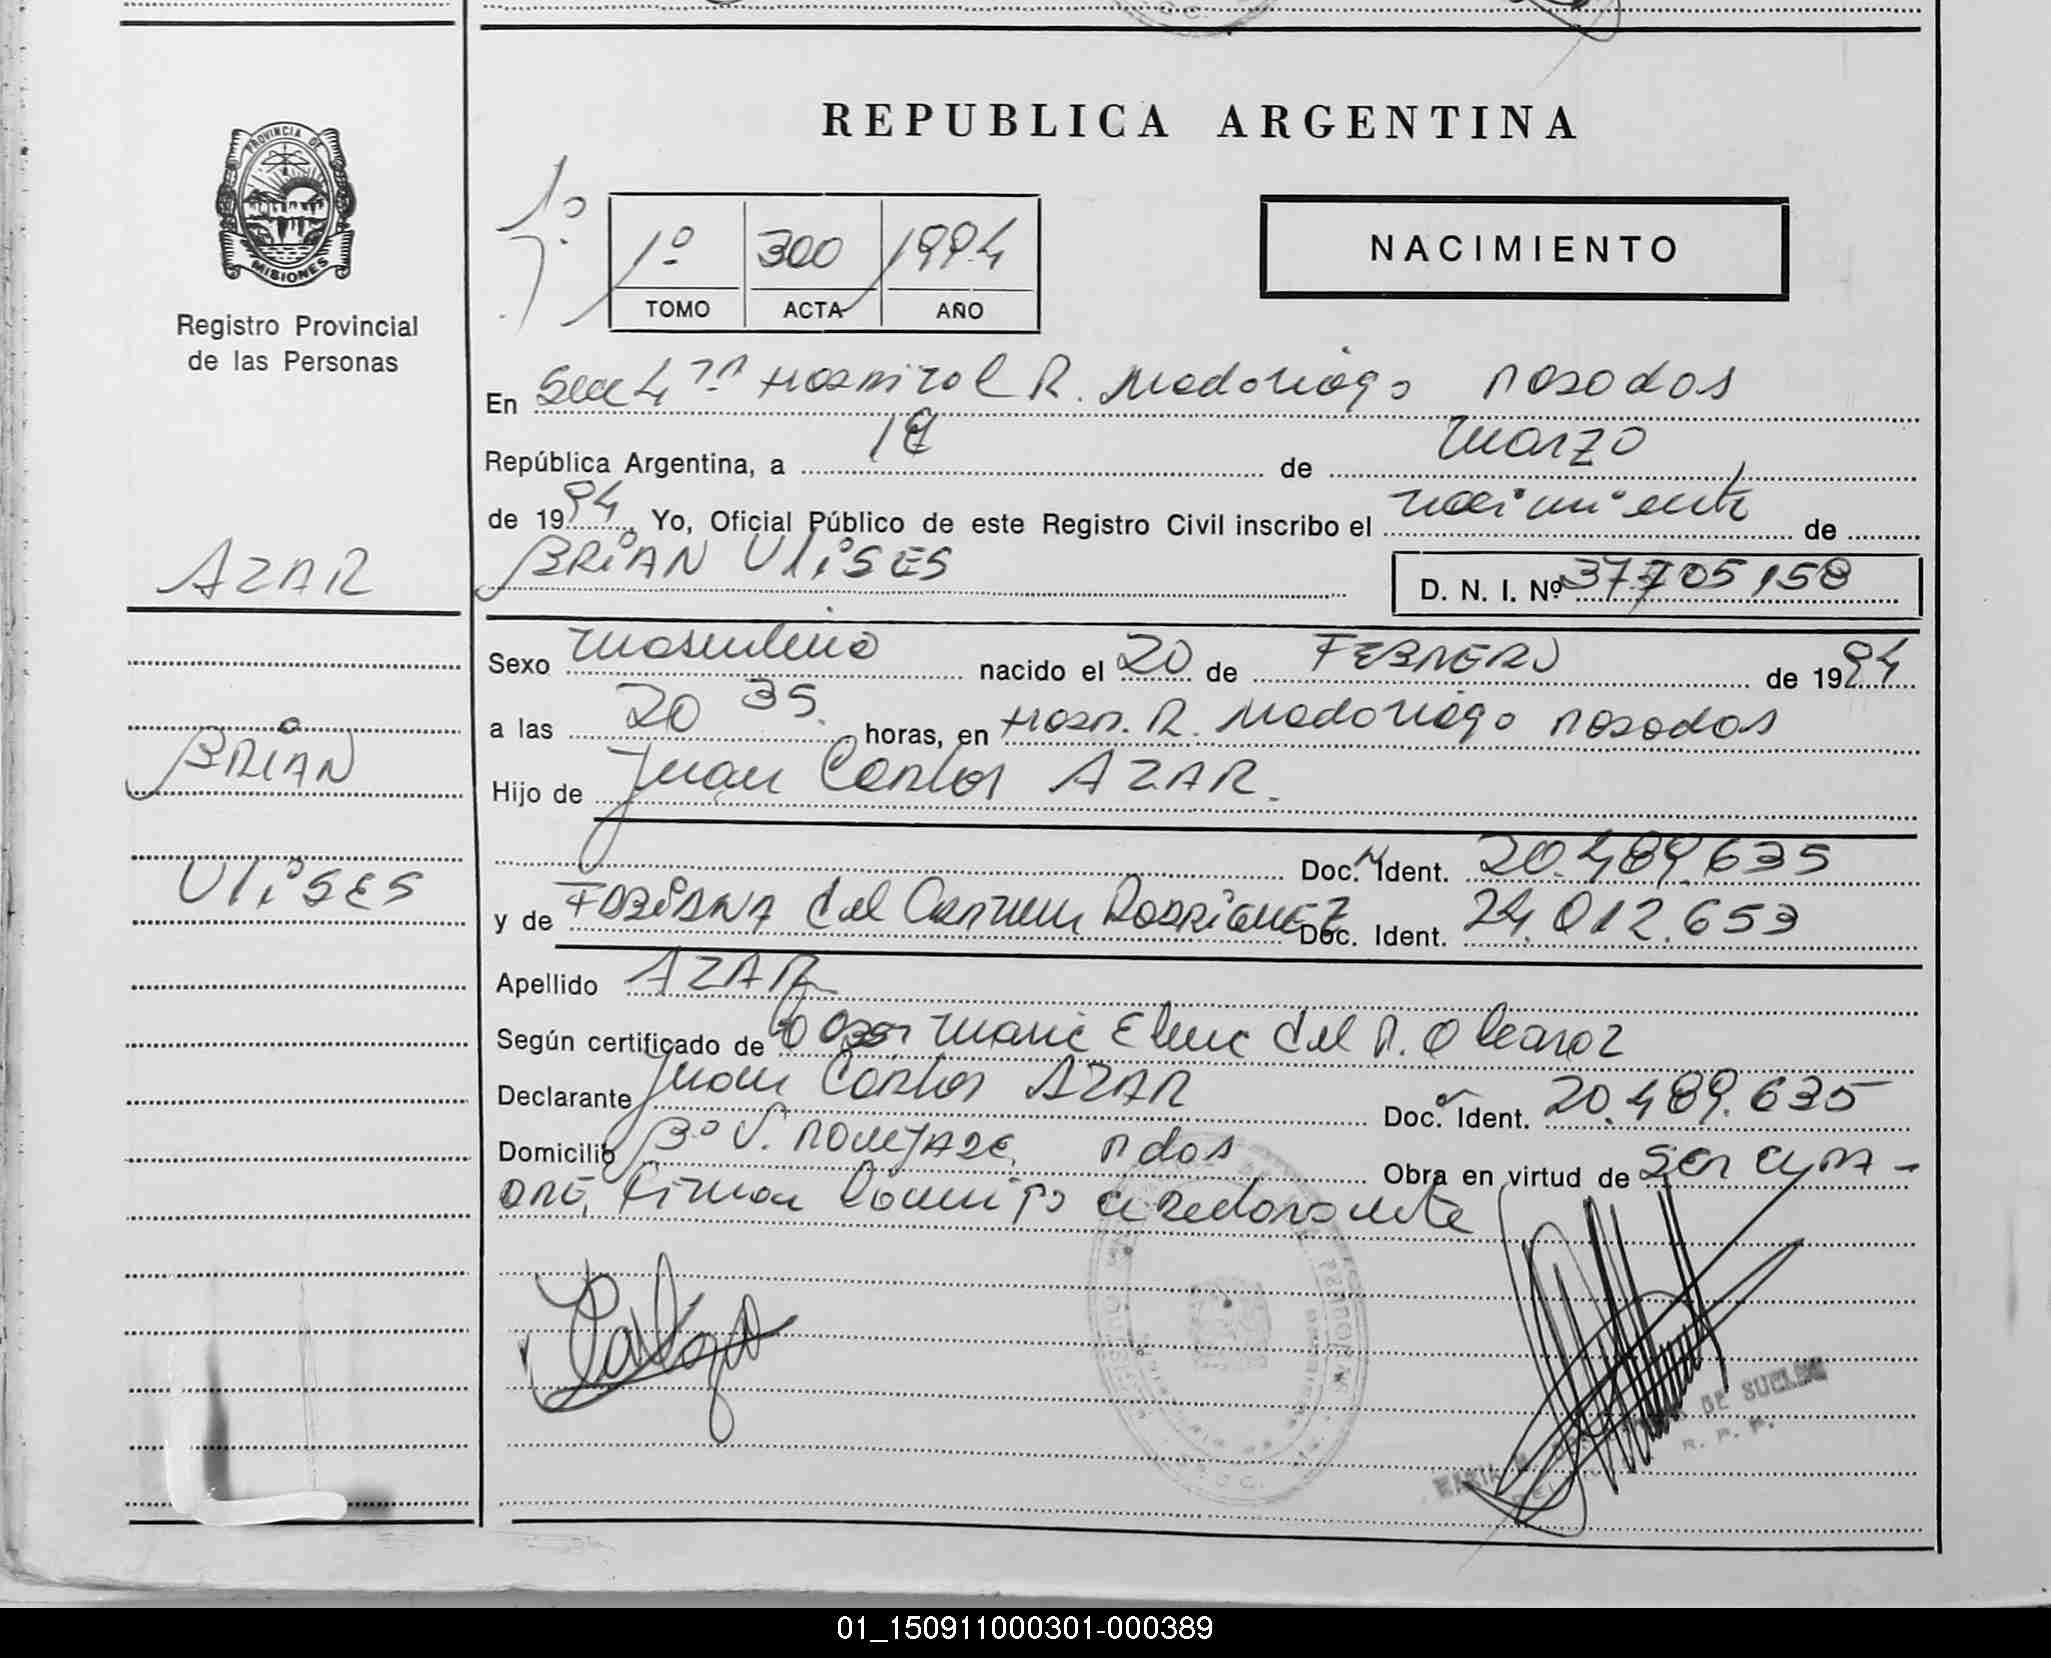 REPUBLICA ARGENTINA
PROVINCIA DE
MISIONES
Registro Provincial
de las Personas
1º
1º 300 1994
TOMO ACTA AÑO
NACIMIENTO
En Secc 4 Hospital R. Madariaga Posadas
República Argentina, a de marzo
de 1994 Yo, Oficial Público de este Registro Civil inscribo el nacimiento de
BRIAN ULISES
D. N. I. Nº 37705158
AZAR
BRIAN
ULISES
Sexo masculino nacido el 20 de FEBRERO de 1994
a las 20 35 horas, en Hosp. R. Madariaga Posadas
Hijo de Juan Carlos AZAR
Doc. Ident. 20.489.635
y de FABIANA del Carmen RODRIGUEZ Doc. Ident. 24.012.653
Apellido AZAR
Según certificado de Maria Elena del
Declarante Juan Carlos AZAR Doc. Ident. 20.489.635
Domicilio Bº Pdas Obra en virtud de ser
Firma Conmigo el declarante
01_150911000301-000389